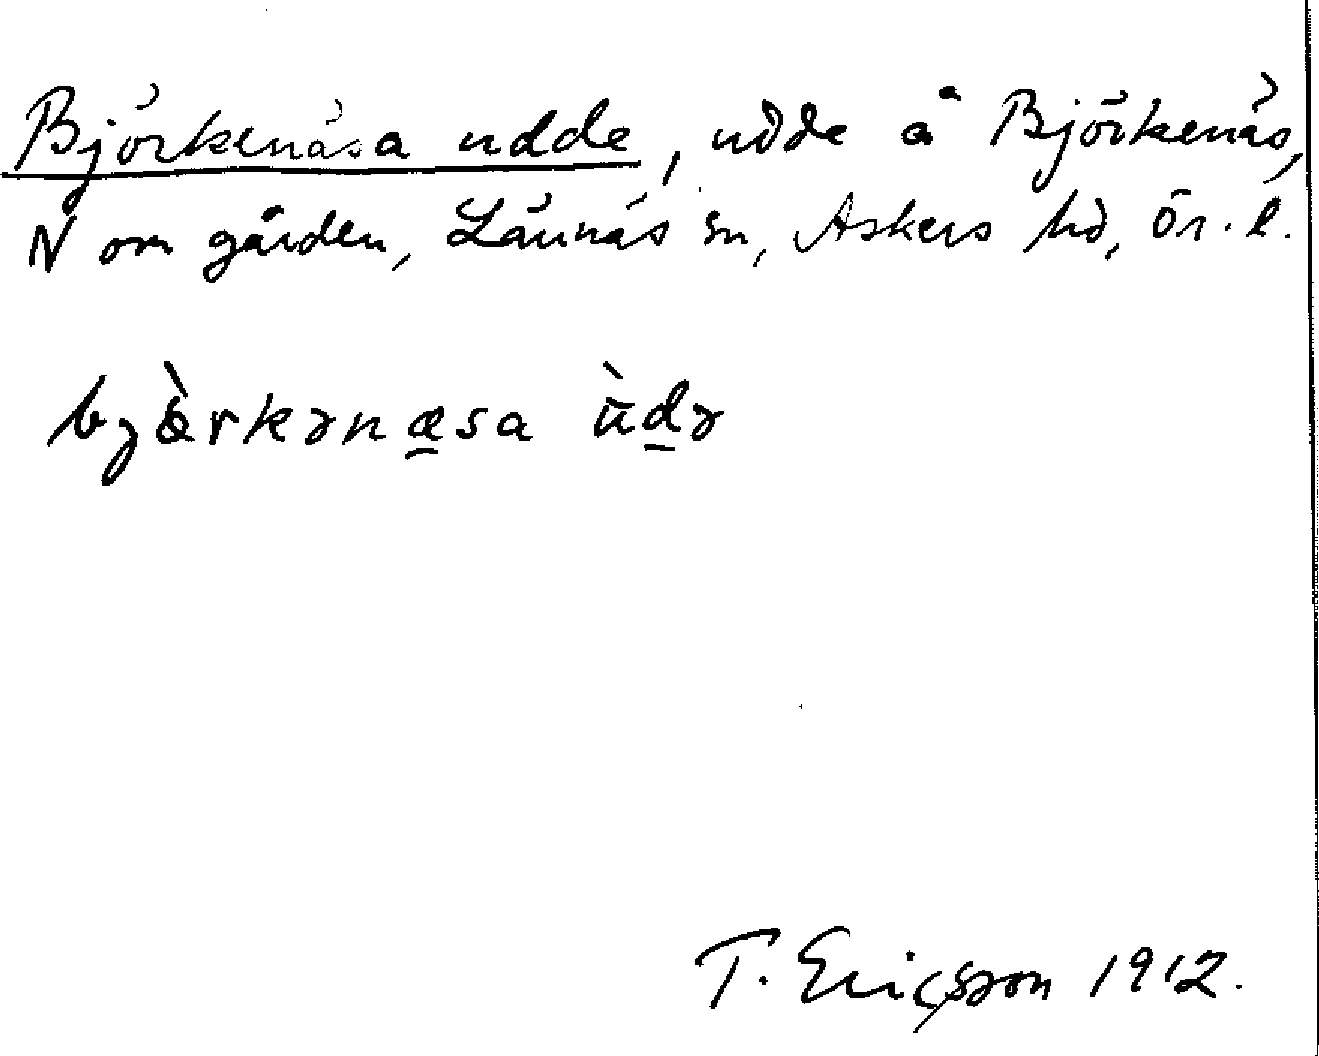 Björkenäsa udde, udde å Björkenäs,
N om gården, Lännäs sn, Askers hd, Ör. l.
bjö̀rkənæ̱sa ùd̲ə
T. Ericsson 1912.